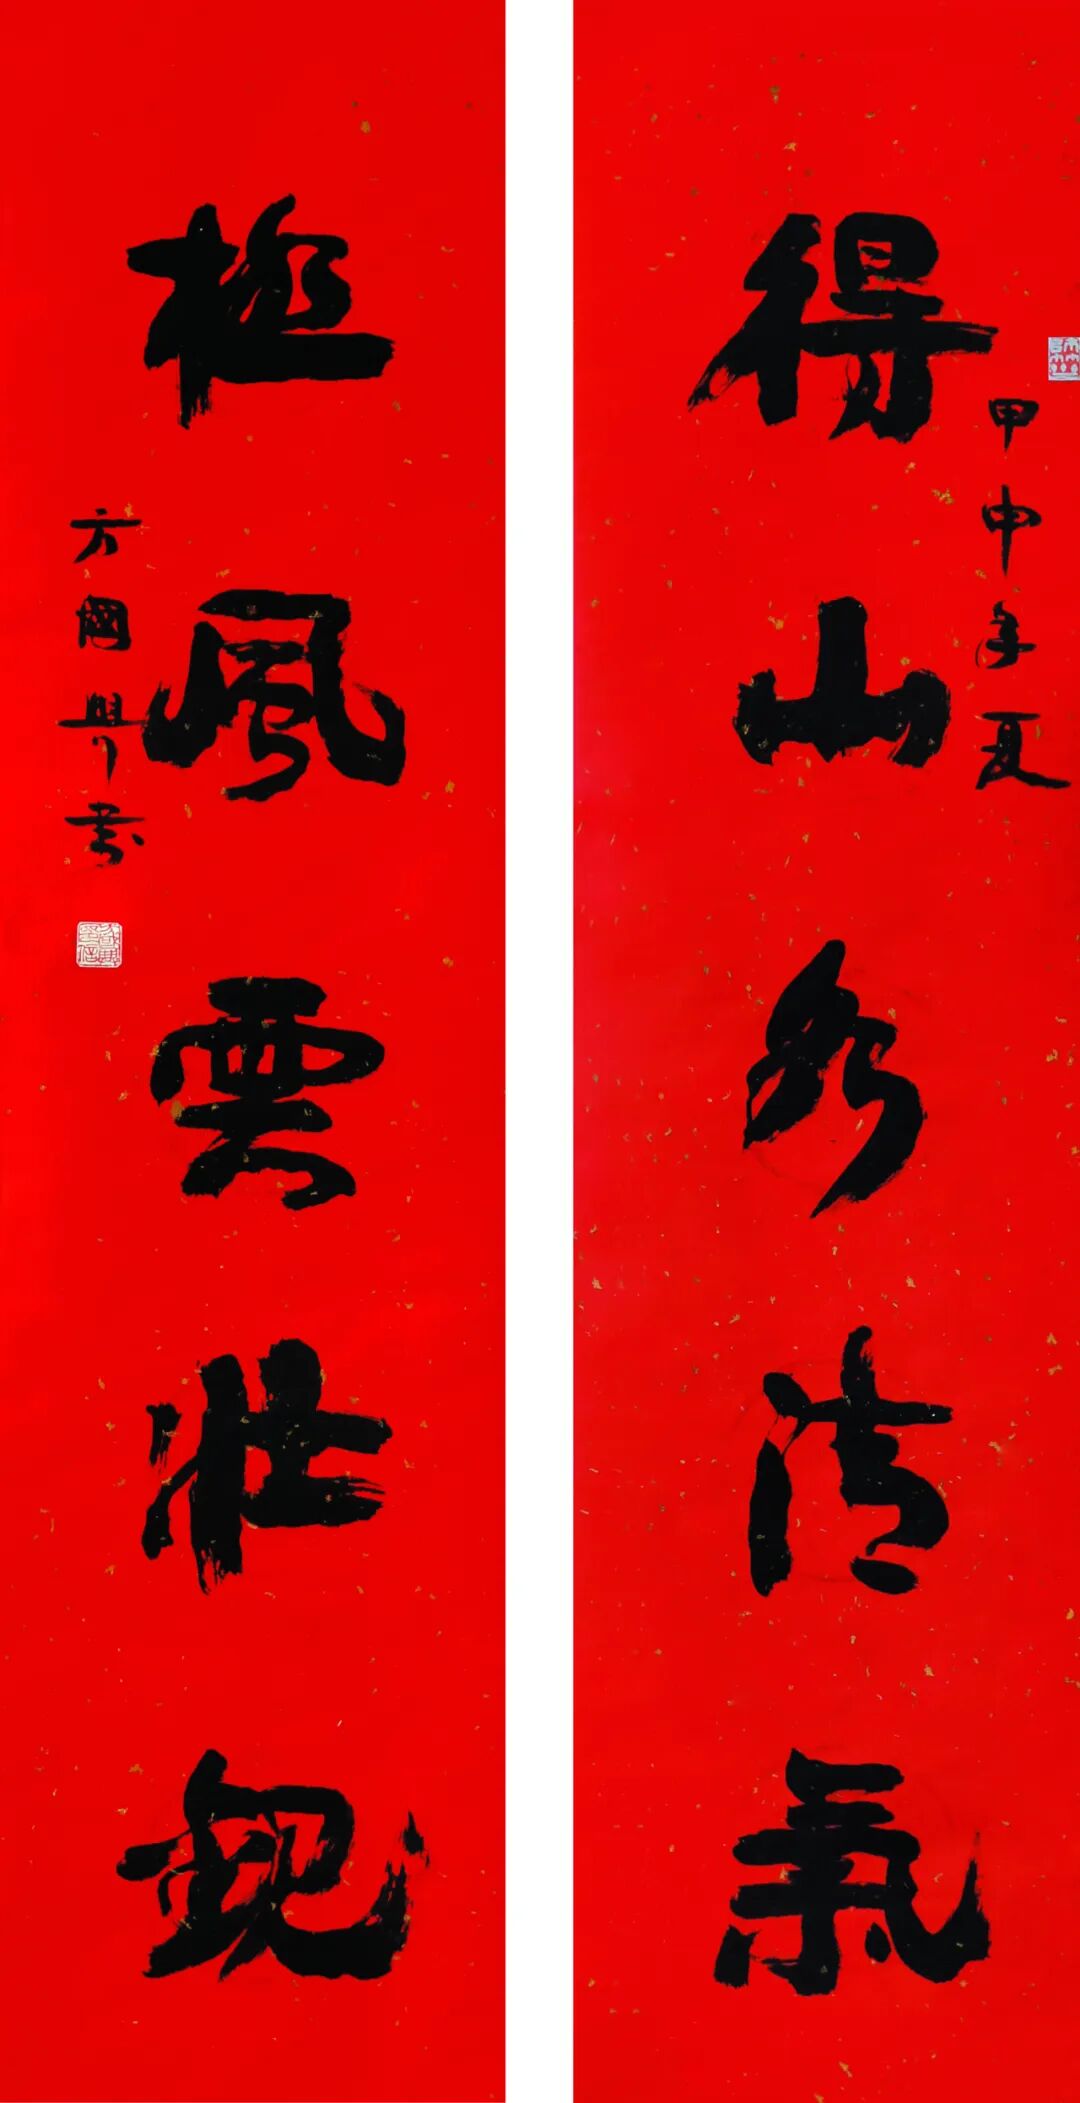 甲申年夏
得山水清氣
極風雲壯觀
方國興書